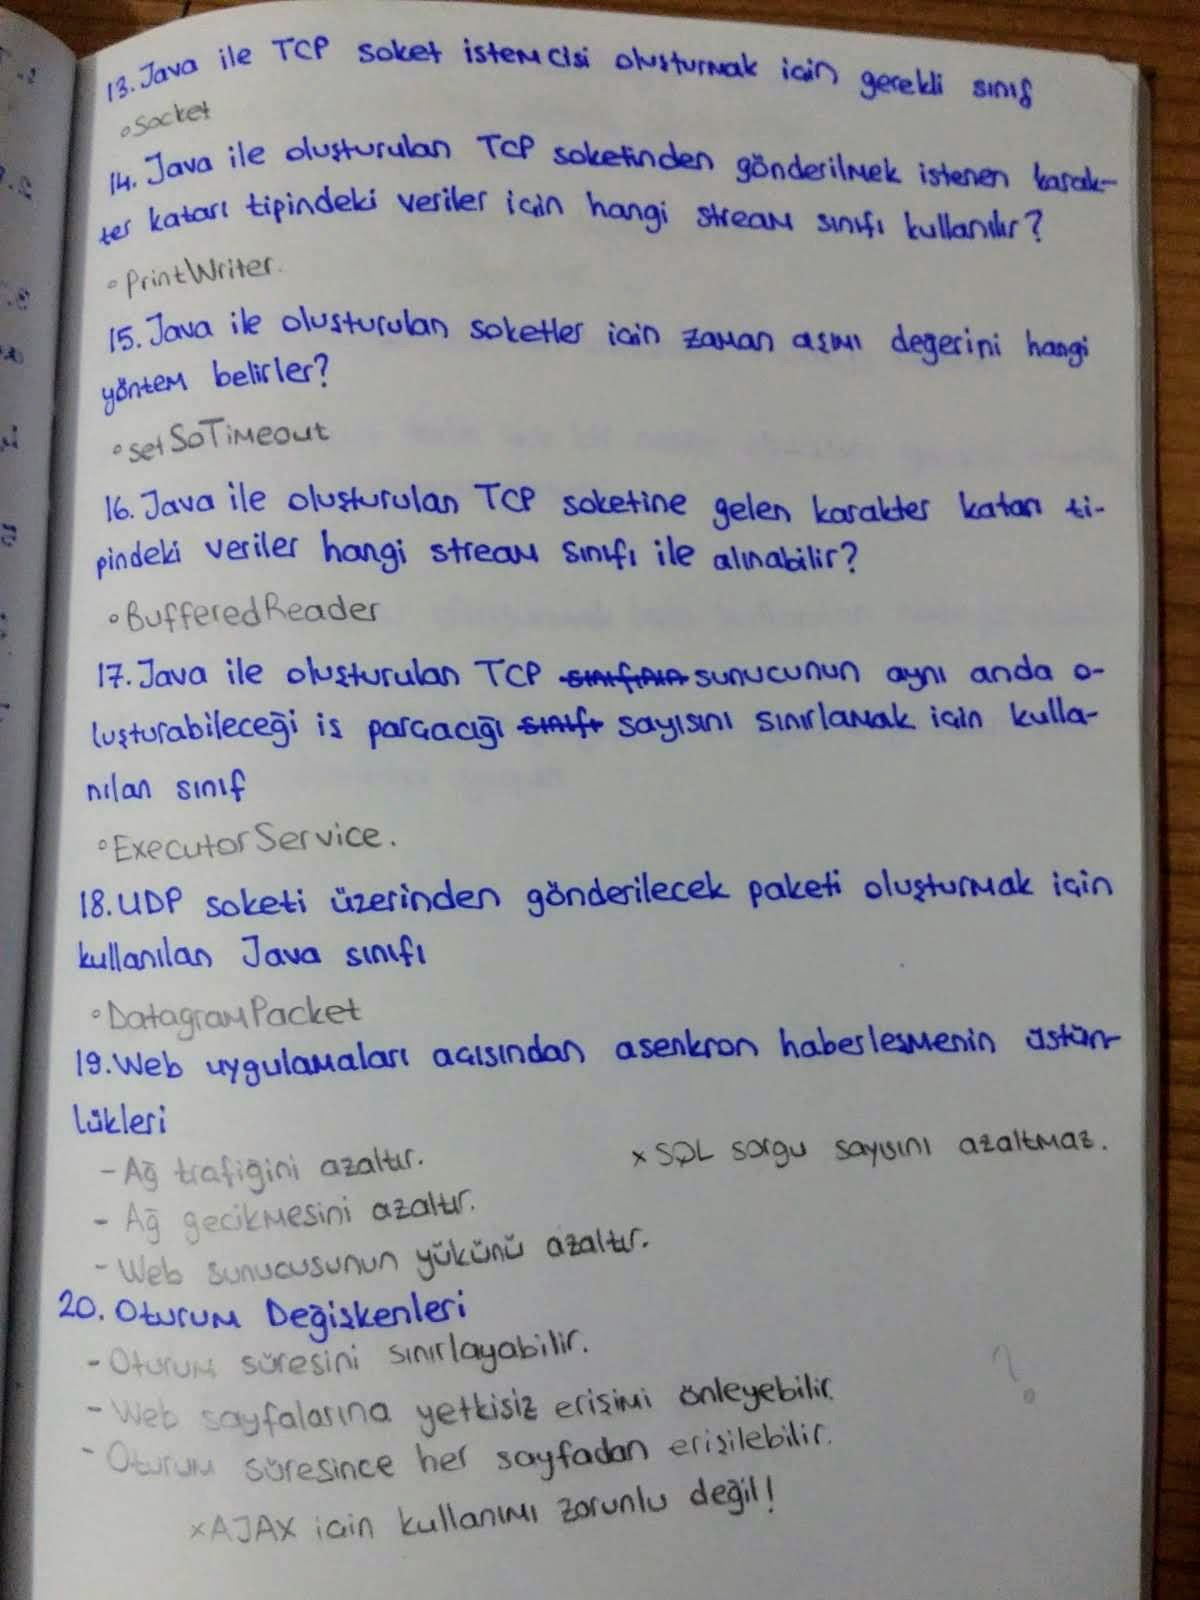 13. Java ile TCP soket istemcisi oluşturmak için gerekli sınıf
° Socket
14. Java ile oluşturulan TCP soketinden gönderilmek istenen karak-
ter katarı tipindeki veriler için hangi stream sınıfı kullanılır?
° PrintWriter.
15. Java ile oluşturulan soketler için zaman aşımı değerini hangi
yöntem belirler?
° setSoTimeout
16. Java ile oluşturulan TCP soketine gelen karakter katarı ti-
pindeki veriler hangi stream sınıfı ile alınabilir?
° BufferedReader
17. Java ile oluşturulan TCP sınıfının sunucunun aynı anda o-
luşturabileceği iş parçacığı sınıfı sayısını sınırlamak için kulla-
nılan sınıf
° ExecutorService.
18. UDP soketi üzerinden gönderilecek paketi oluşturmak için
kullanılan Java sınıfı
° DatagramPacket
19. Web uygulamaları açısından asenkron haberleşmenin üstün-
lükleri
- Ağ trafiğini azaltır.
x SQL sorgu sayısını azaltmaz.
- Ağ gecikmesini azaltır.
- Web sunucusunun yükünü azaltır.
20. Oturum Değişkenleri
- Oturum süresini sınırlayabilir.
- Web sayfalarına yetkisiz erişimi önleyebilir.
- Oturum süresince her sayfadan erişilebilir.
?
x AJAX için kullanımı zorunlu değil!